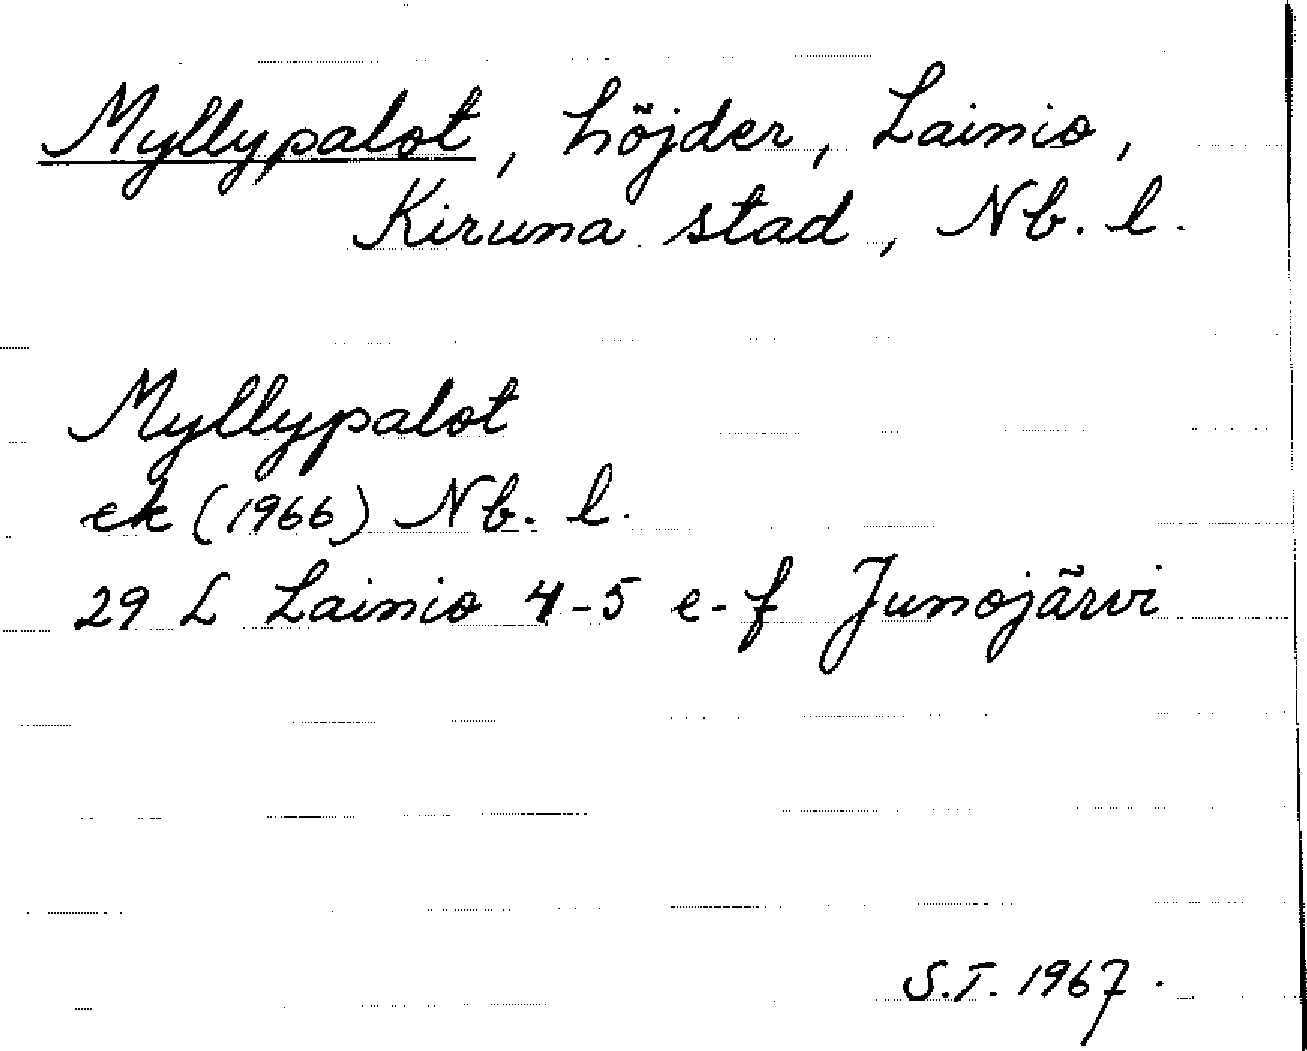 Myllypalot, höjder, Lainio,
Kiruna stad, Nb. l.
Myllypalot
ek (1966) Nb. l.
29 L Lainio 4-5 e-f Junojärvi
S.T. 1967.